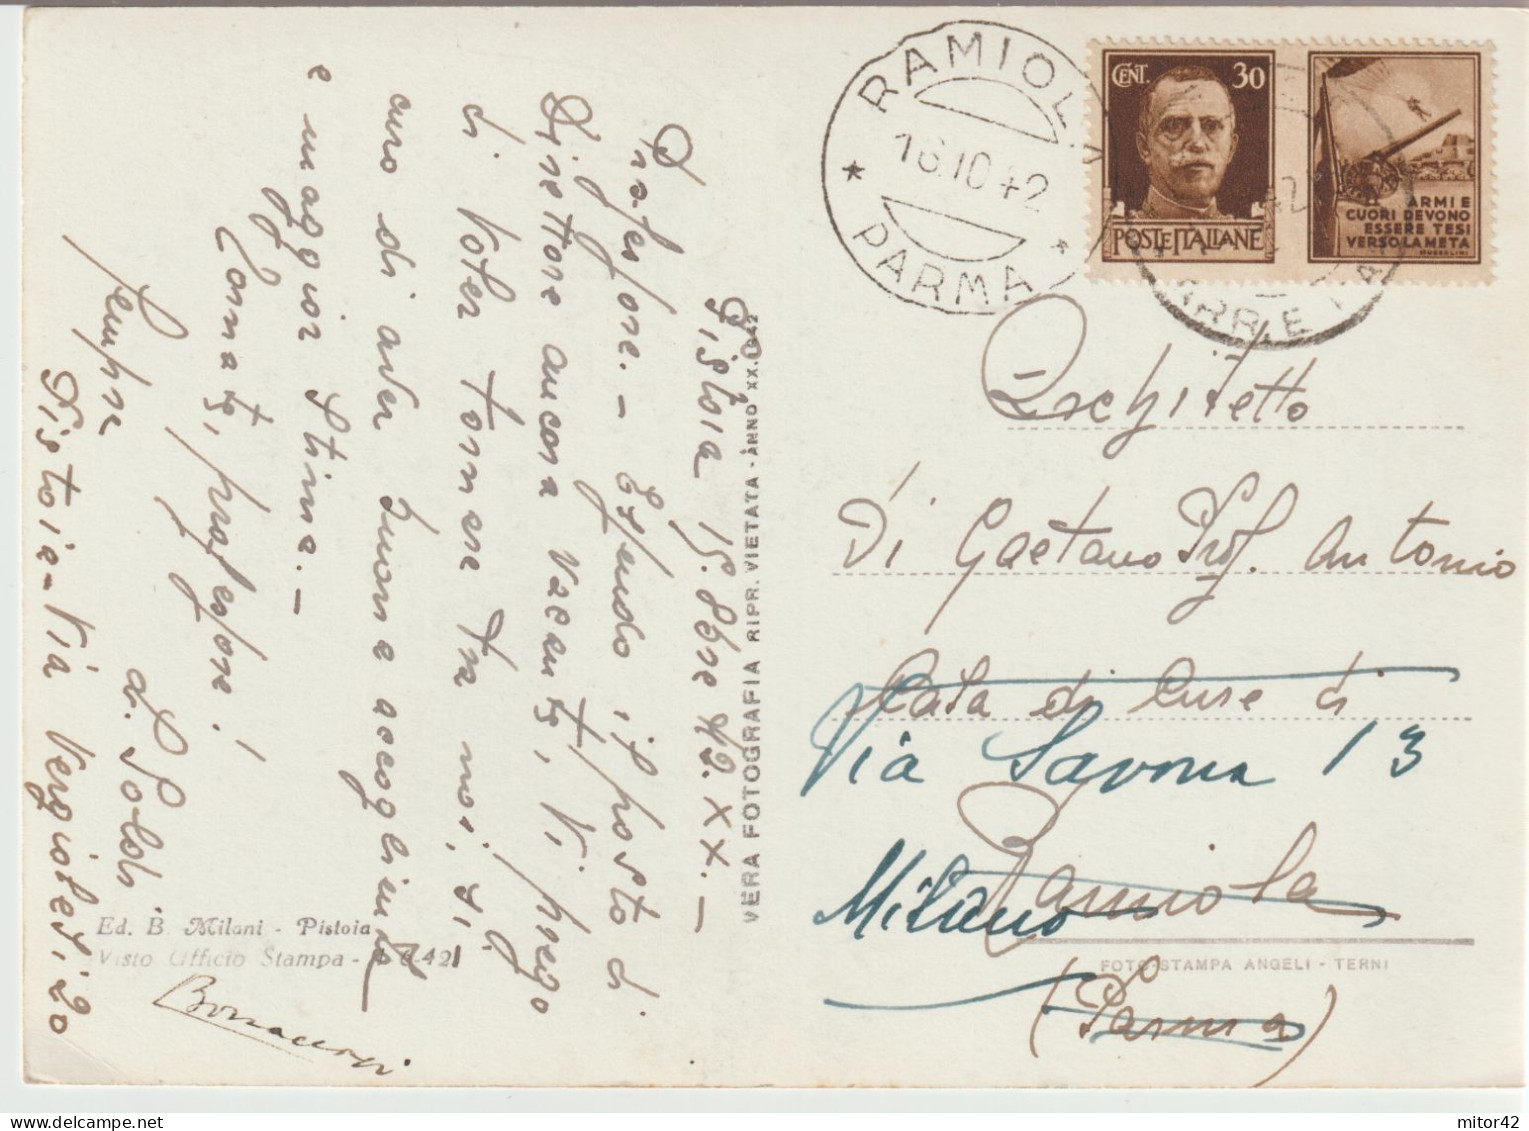 Pistoia 15. 8bre 42. XX. -
Professore. - Essendo il posto di
Direttore ancora vacante, Vi prego
di voler tornare tra noi, si-
curo di aver buona accoglienza
e maggior stima. -
Tornate, professore!
Sempre
Soldi
Pistoia - Via Vergiolesi 20
Ed. B. Milani - Pistoia
Visto Ufficio Stampa -
VERA FOTOGRAFIA RIPR. VIETATA - ANNO XX. 1942
RAMIOLA
16.10.42
* PARMA *
CENT. 30
POSTE ITALIANE
ARMI E
CUORI DEVONO
ESSERE TESI
VERSO LA META
MUSSOLINI
Architetto
Di Gaetano Prof. Antonio
Casa di Cure di
Via Savona 13
Ramiola
Milano
FOTO-STAMPA ANGELI - TERNI
(Parma)
mitor42